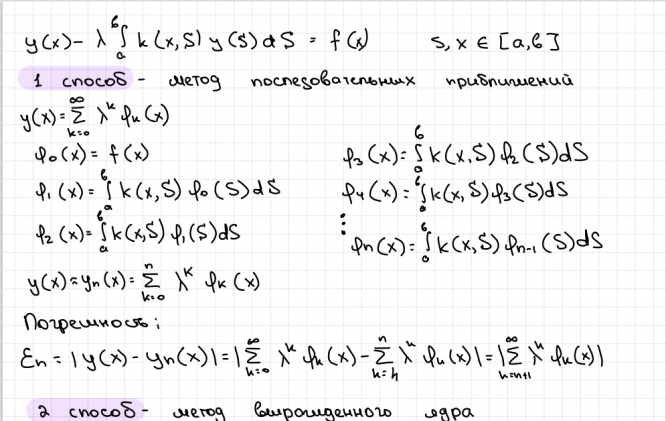 y(x) - λ ∫ₐᵇ k(x,S) y(S) dS = f(x)  S, x ∈ [a,b]
1 способ - метод последовательных приближений
y(x) = ∑_{k=0}^{∞} λᵏ φₖ(x)
φ₀(x) = f(x)
φ₁(x) = ∫ₐᵇ k(x,S) φ₀(S) dS
φ₂(x) = ∫ₐᵇ k(x,S) φ₁(S) dS
φ₃(x) = ∫ₐᵇ k(x,S) φ₂(S) dS
φ₄(x) = ∫ₐᵇ k(x,S) φ₃(S) dS
⋮
φₙ(x) = ∫ₐᵇ k(x,S) φₙ₋₁(S) dS
y(x) ≈ yₙ(x) = ∑_{k=0}^{n} λᴷ φₖ(x)
Погрешность:
εₙ = |y(x) - yₙ(x)| = |∑_{k=0}^{∞} λᵏ φₖ(x) - ∑_{k=1}^{n} λᵏ φₖ(x)| = |∑_{k=n+1}^{∞} λᵏ φₖ(x)|
2 способ - метод вырожденного ядра